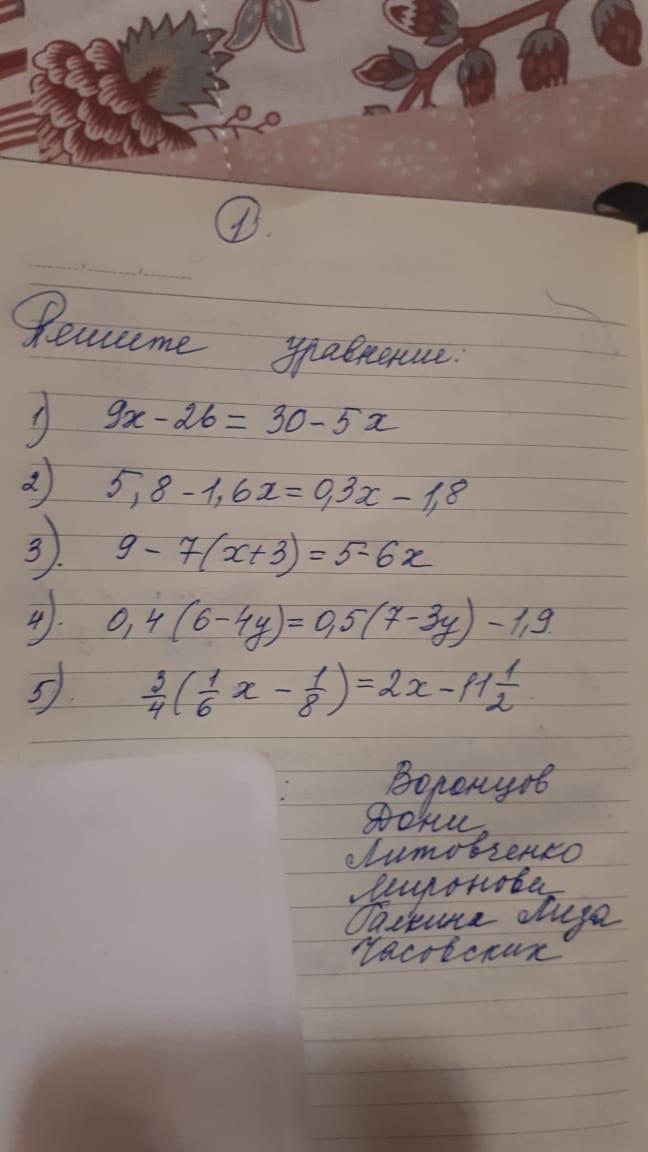 1.
Решите уравнение:
1) 9x - 26 = 30 - 5x
2) 5,8 - 1,6x = 0,3x - 1,8
3). 9 - 7(x+3) = 5 - 6x
4). 0,4(6-4y) = 0,5(7-3y) - 1,9.
5). 3/4(1/6 x - 1/8) = 2x - 11 1/2.
Воронцов
Дони
Литовченко
Миронова
Галкина Лиза
Часовских